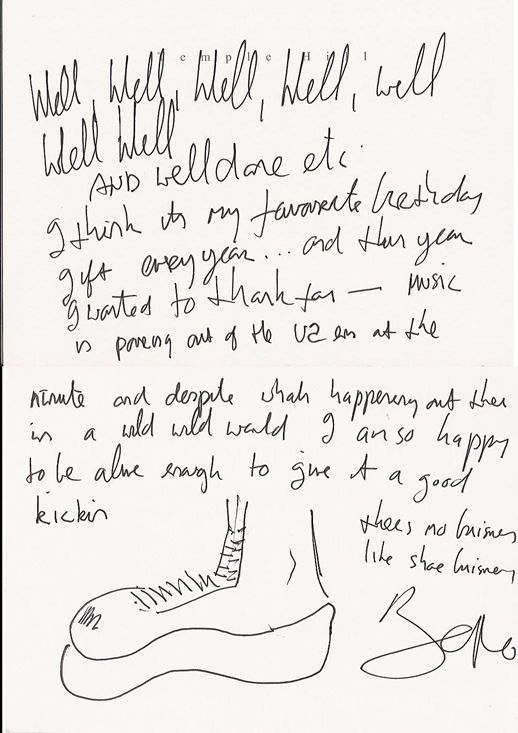 Temple Hill
Well, Well, Well, Well, well
Well Well
AND well done etc.
I think its my favourite birthday
gift every year... and this year
I wanted to thank for — MUSIC
is poring out of the U2 em at the
minute and despite whats happening out there
in a wild wild world I am so happy
to be alive enough to give it a good
kickin
theres no buisness
like shoe buisness
Bono